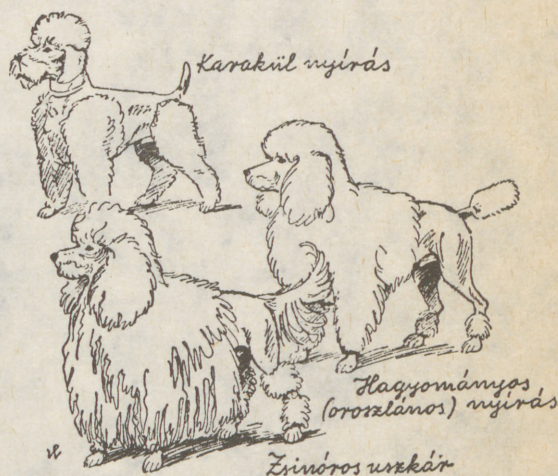 Karakül nyírás
Hagyományos
(oroszlános) nyírás
Zsinóros uszkár